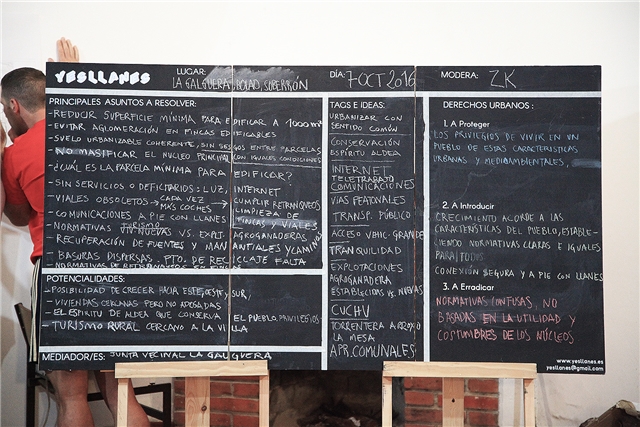 YESLLANES
LUGAR:
LA GALGUERA,
DÍA: 7 OCT 2016
MODERA: ZK
PRINCIPALES ASUNTOS A RESOLVER:
-REDUCIR SUPERFICIE MÍNIMA PARA EDIFICAR A 1000 m²
-EVITAR AGLOMERACIÓN EN FINCAS EDIFICABLES
-SUELO URBANIZABLE COHERENTE, SIN SESGOS ENTRE PARCELAS CON IGUALES CONDICIONES
-NO MASIFICAR EL NUCLEO PRINCIPAL
-¿CUÁL ES LA PARCELA MÍNIMA PARA EDIFICAR?
-SIN SERVICIOS O DEFICITARIOS: LUZ, INTERNET
-VIALES OBSOLETOS → CADA VEZ MÁS COCHES → CUMPLIR RETRANQUEOS LIMPIEZA DE FINCAS Y VIALES
-COMUNICACIONES A PIE CON LLANES
-NORMATIVAS TURISMO VIV NUEVAS VS. EXPLT. AGROGANADERAS
-RECUPERACIÓN DE FUENTES Y MANANTIALES Y CAMINOS
-BASURAS DISPERSAS. PTO. DE RECICLAJE FALTA
-NORMATIVAS DE RETRANQUEOS EN FINCAS
POTENCIALIDADES:
-POSIBILIDAD DE CRECER HACIA ESTE, OESTE, SUR,
-VIVIENDAS CERCANAS PERO NO ADOSADAS
-EL ESPÍRITU DE ALDEA QUE CONSERVA EL PUEBLO, PRIVILEGIOS
-TURISMO RURAL CERCANO A LA VILLA
MEDIADOR/ES: JUNTA VECINAL LA GALGUERA
TAGS E IDEAS:
URBANIZAR CON SENTIDO COMÚN
CONSERVACIÓN ESPÍRITU ALDEA
INTERNET
TELETRABAJO
COMUNICACIONES
VÍAS PEATONALES
TRANSP. PÚBLICO
ACCESO VEHIC. GRANDE
TRANQUILIDAD
EXPLOTACIONES AGROGANADERA
ESTABLECIDAS VS. NUEVAS
CUCHU
TORRENTERA A ARROYO LA MESA
APR. COMUNALES
DERECHOS URBANOS :
1. A Proteger
LOS PRIVILEGIOS DE VIVIR EN UN
PUEBLO DE ESTAS CARACTERÍSTICAS
URBANAS Y MEDIOAMBIENTALES,
2. A Introducir
CRECIMIENTO ACORDE A LAS
CARACTERÍSTICAS DEL PUEBLO, ESTABLE-
CIENDO NORMATIVAS CLARAS E IGUALES
PARA TODOS
CONEXIÓN SEGURA Y A PIE CON LLANES
3. A Erradicar
NORMATIVAS CONFUSAS, NO
BASADAS EN LA UTILIDAD Y
COSTUMBRES DE LOS NÚCLEOS
www.yesllanes.es
yesllanes@gmail.com